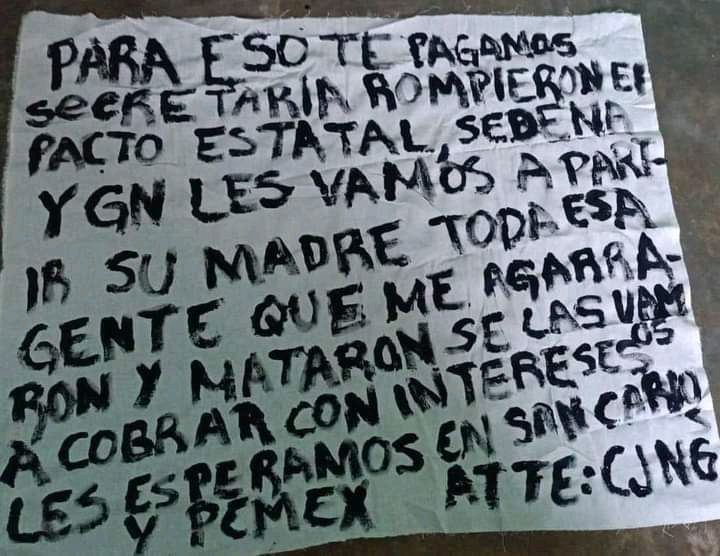 PARA ESO TE PAGAMOS
SECRETARIA ROMPIERON EL
PACTO ESTATAL, SEDENA
Y GN LES VAMOS A PART-
IR SU MADRE TODA ESA
GENTE QUE ME AGARRA-
RON Y MATARON SE LAS VAMOS
A COBRAR CON INTERESES
LES ESPERAMOS EN SAN CARLOS
Y PEMEX ATTE: CJNG